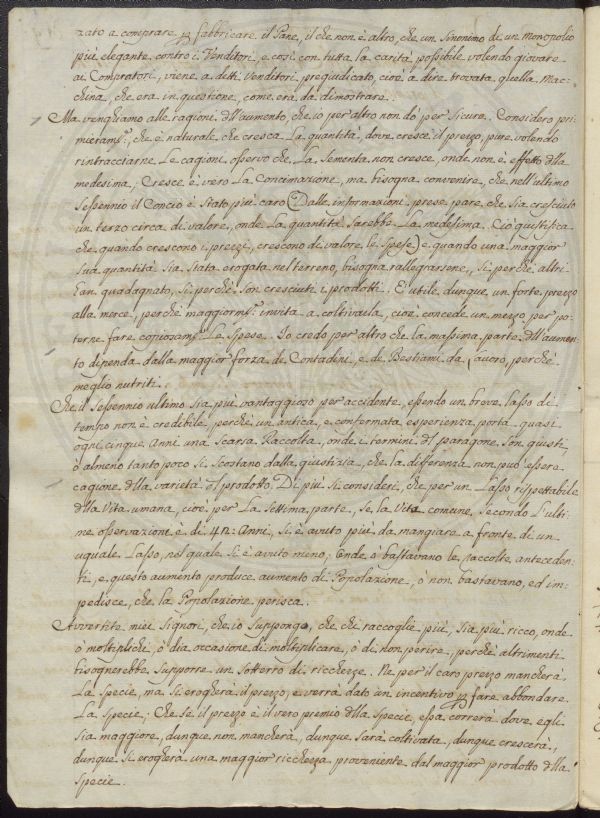 zato a comprare, p fabbricare il Pane, il che non è altro, che un Sinonimo di un monopolio
più elegante contro i Venditori, e così con tutta la carità possibile volendo giovare
ai Compratori, viene a detti Venditori pregiudicato, cioè a dire trovata quella Mac-
china, che era in questione, come era da dimostrare.
Ma venghiamo alle ragioni dll'aumento, che io per altro non do per sicure. Considero pri-
mieram:e, che è naturale che cresca La quantità, dove cresce il prezzo, pure volendo
rintracciarne Le cagioni, osservo che La Sementa non cresce, onde non è effetto dlla
medesima; Cresce è vero La Concimazione, ma bisogna convenire, che nell'ultimo
Sessennio il Concio è Stato più caro (Dalle informazioni prese pare, che Sia cresciuto
un terzo circa di valore, onde La quantità Sarebbe La medesima. Ciò giustifica
che quando crescono i prezzi, crescono di valore le Spese) e quando una maggior
Sua quantità Sia Stata erogata nel terreno, bisogna rallegrarsene, Sì perchè altri
han guadagnato, Sì perchè Son cresciuti i prodotti. È utile dunque un forte prezzo
alla merce, perchè maggiorm:e invita a coltivarla, cioè concede un mezzo per po-
terne fare copiosam:e Le Spese. Io credo per altro che la massima parte dll'aumen-
to dipenda dalla maggior forza de Contadini, e de Bestiami da Lavoro, perchè
meglio nutriti.
Che il Sessennio ultimo Sia più vantaggioso per accidente, essendo un breve lasso di
tempo non è credibile, perchè un'antica, e confermata esperienza porta quasi
ogni cinque Anni una Scarsa Raccolta, onde i termini dl paragone Son giusti,
ò almeno tanto poco Si Scostano dalla giustizia, che la differenza non può essere
cagione dlla varietà dl prodotto. Di più Si consideri, che per un Lasso rispettabile
dlla Vita umana, cioè per La Settima parte, Se la Vita comune, Secondo L'ulti-
me osservazioni è di 42: Anni, Si è avuto più da mangiare a fronte di un
uguale Lasso, nel quale Si è avuto meno; Onde ò bastavano le raccolte anteceden-
ti, e questo aumento produce aumento di Popolazione, ò non bastavano, ed im-
pedisce, che la Popolazione perisca.
Avvertite miei Signori, che io Suppongo, che chi raccoglie più, Sia più ricco, onde
ò moltiplichi, ò dia occasione di moltiplicare, ò di non perire, perchè altrimenti
bisognerebbe Supporre un Sotterro di ricchezze. Ne per il caro prezzo mancherà
La Specie, ma Si erogherà il prezzo, e verrà dato un incentivo p fare abbondare
La Specie; Che Se il prezzo è il vero premio dlla Specie, essa correrà dove egli
Sia maggiore, dunque non mancherà, dunque Sarà coltivata, dunque crescerà,
dunque Si erogherà una maggior ricchezza proveniente dal maggior prodotto dlla
Specie.